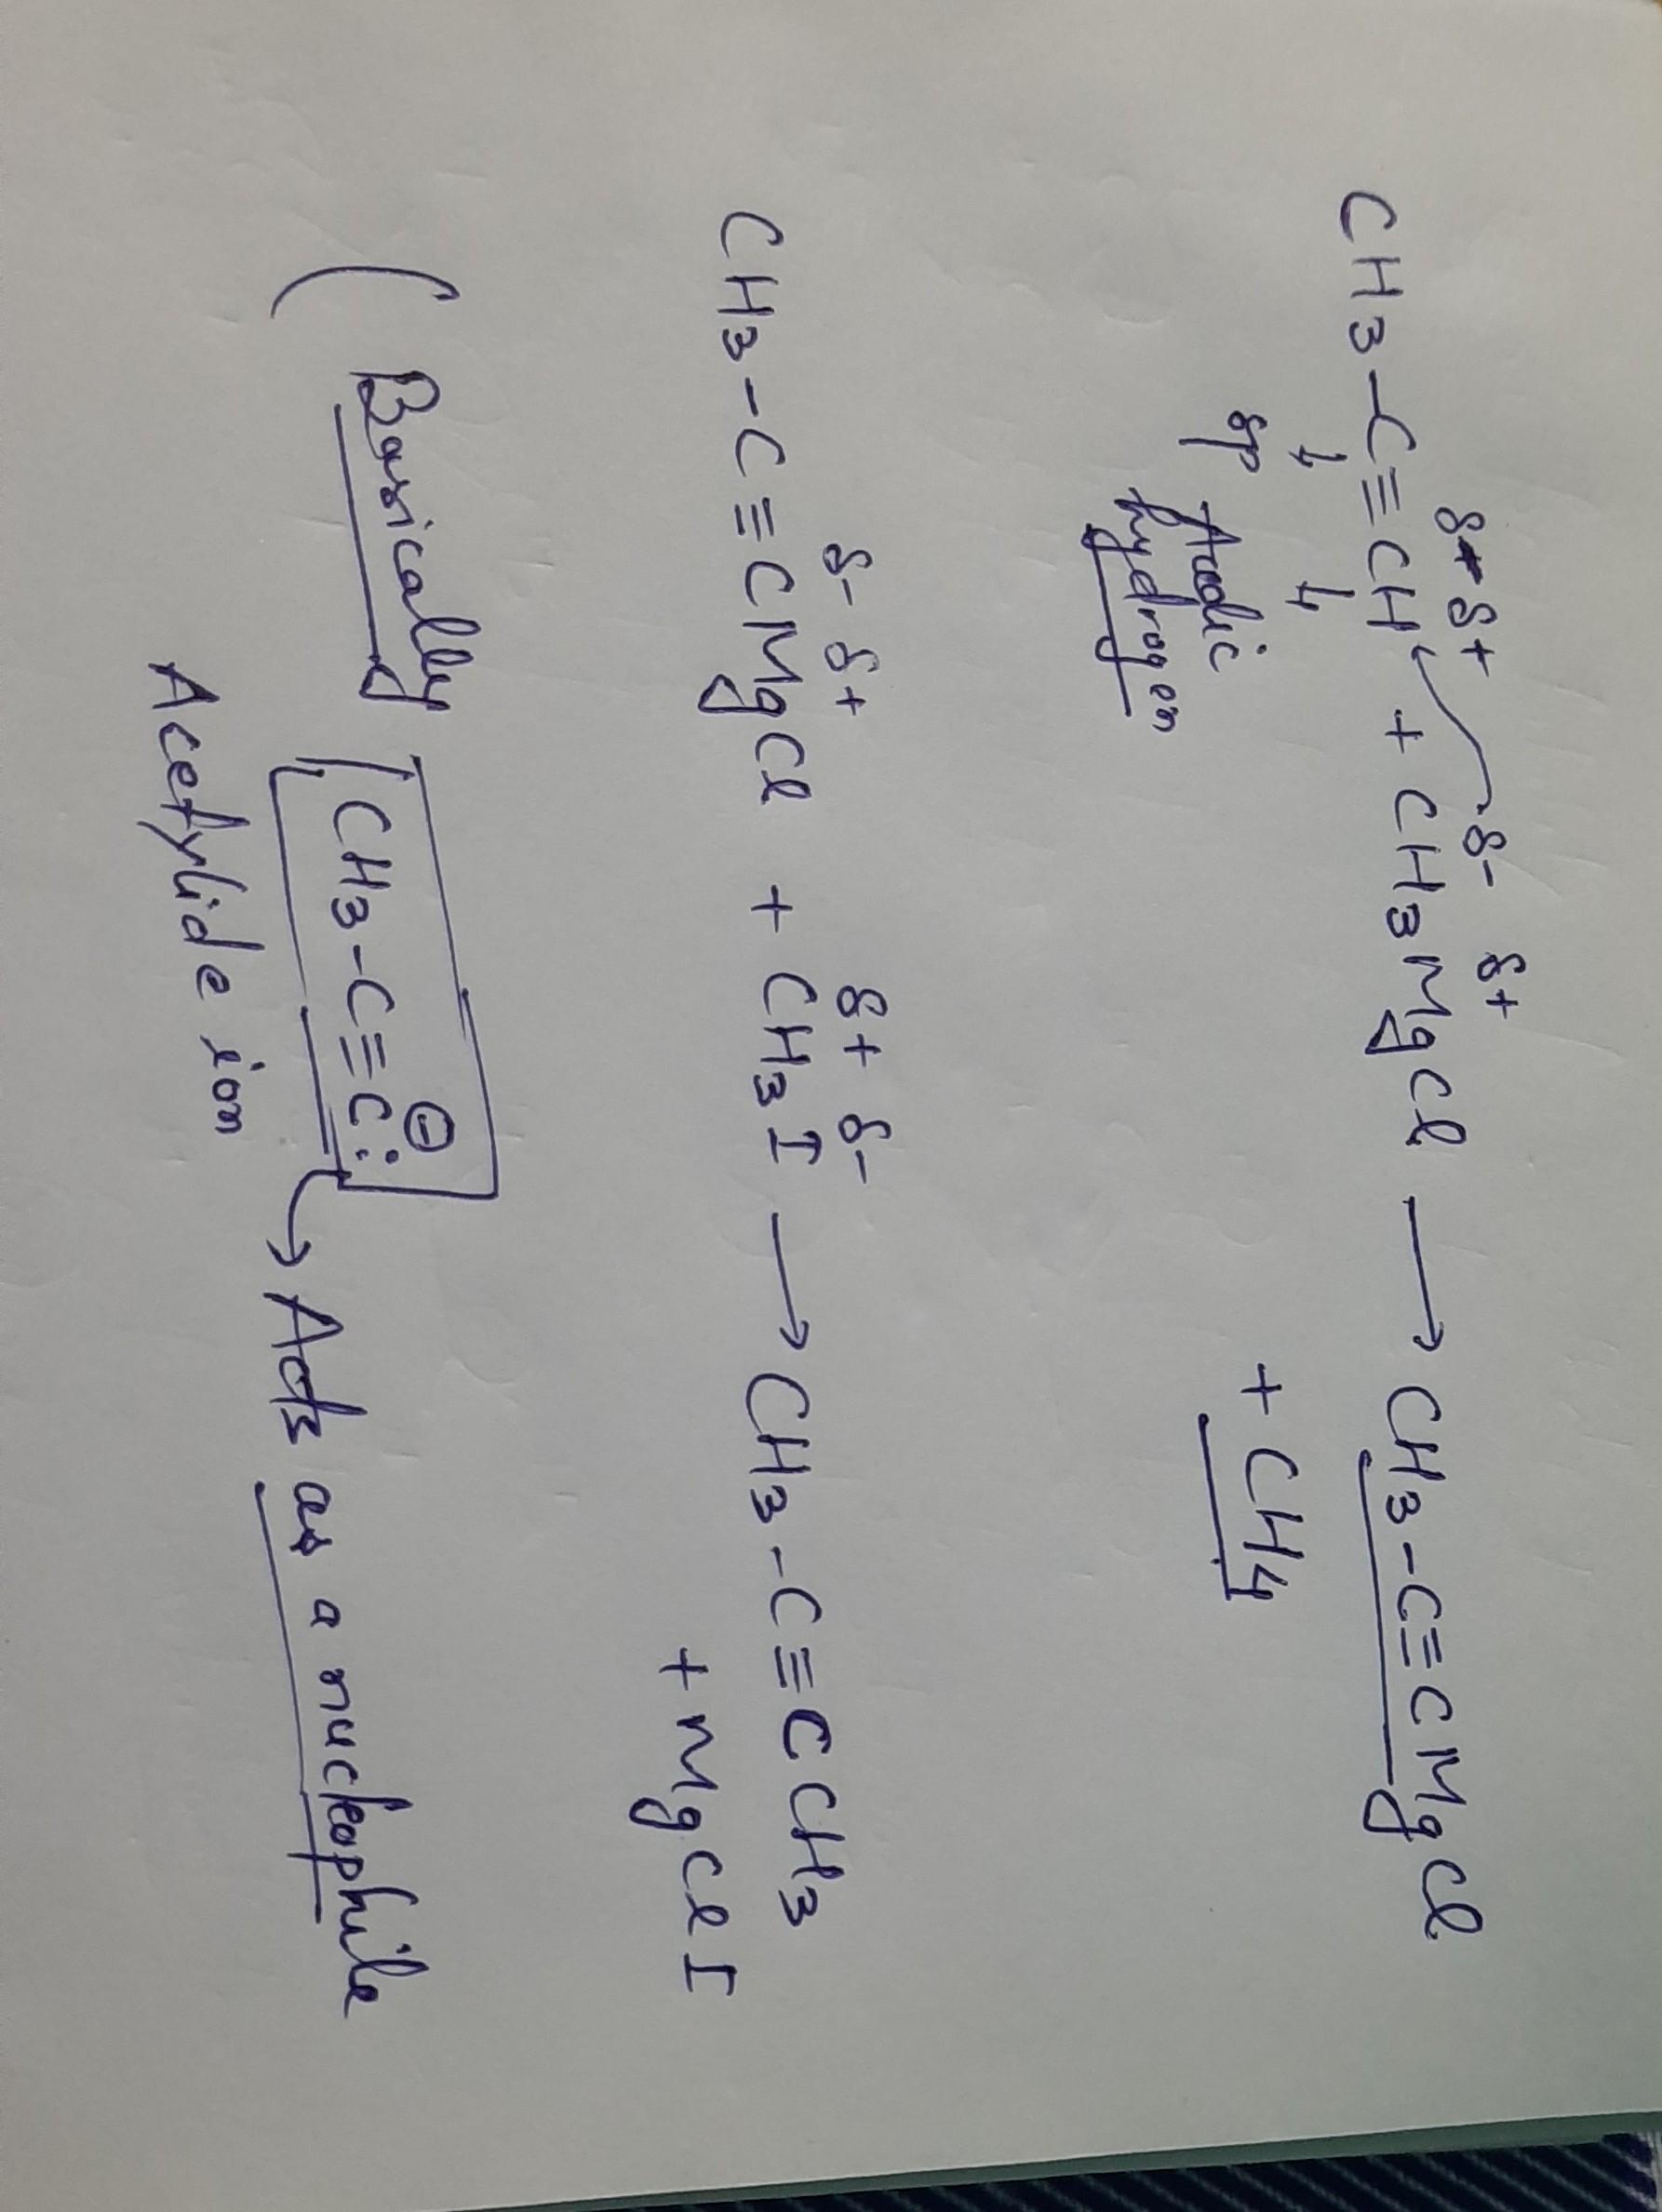 δ- δ+ δ- δ+
CH3-C≡CH + CH3MgCl → CH3-C≡CMgCl
↓ ↓
sp Acidic hydrogen + CH4
δ- δ+ δ+ δ-
CH3-C≡CMgCl + CH3I → CH3-C≡CCH3
+ MgClI
( Basically [CH3-C≡C:⊖ → Acts as a nucleophile
Acetylide ion